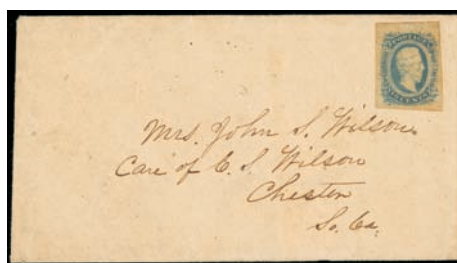 Mrs. John S. Wilson
Care of C. S. Wilson
Chester
So. Ca.